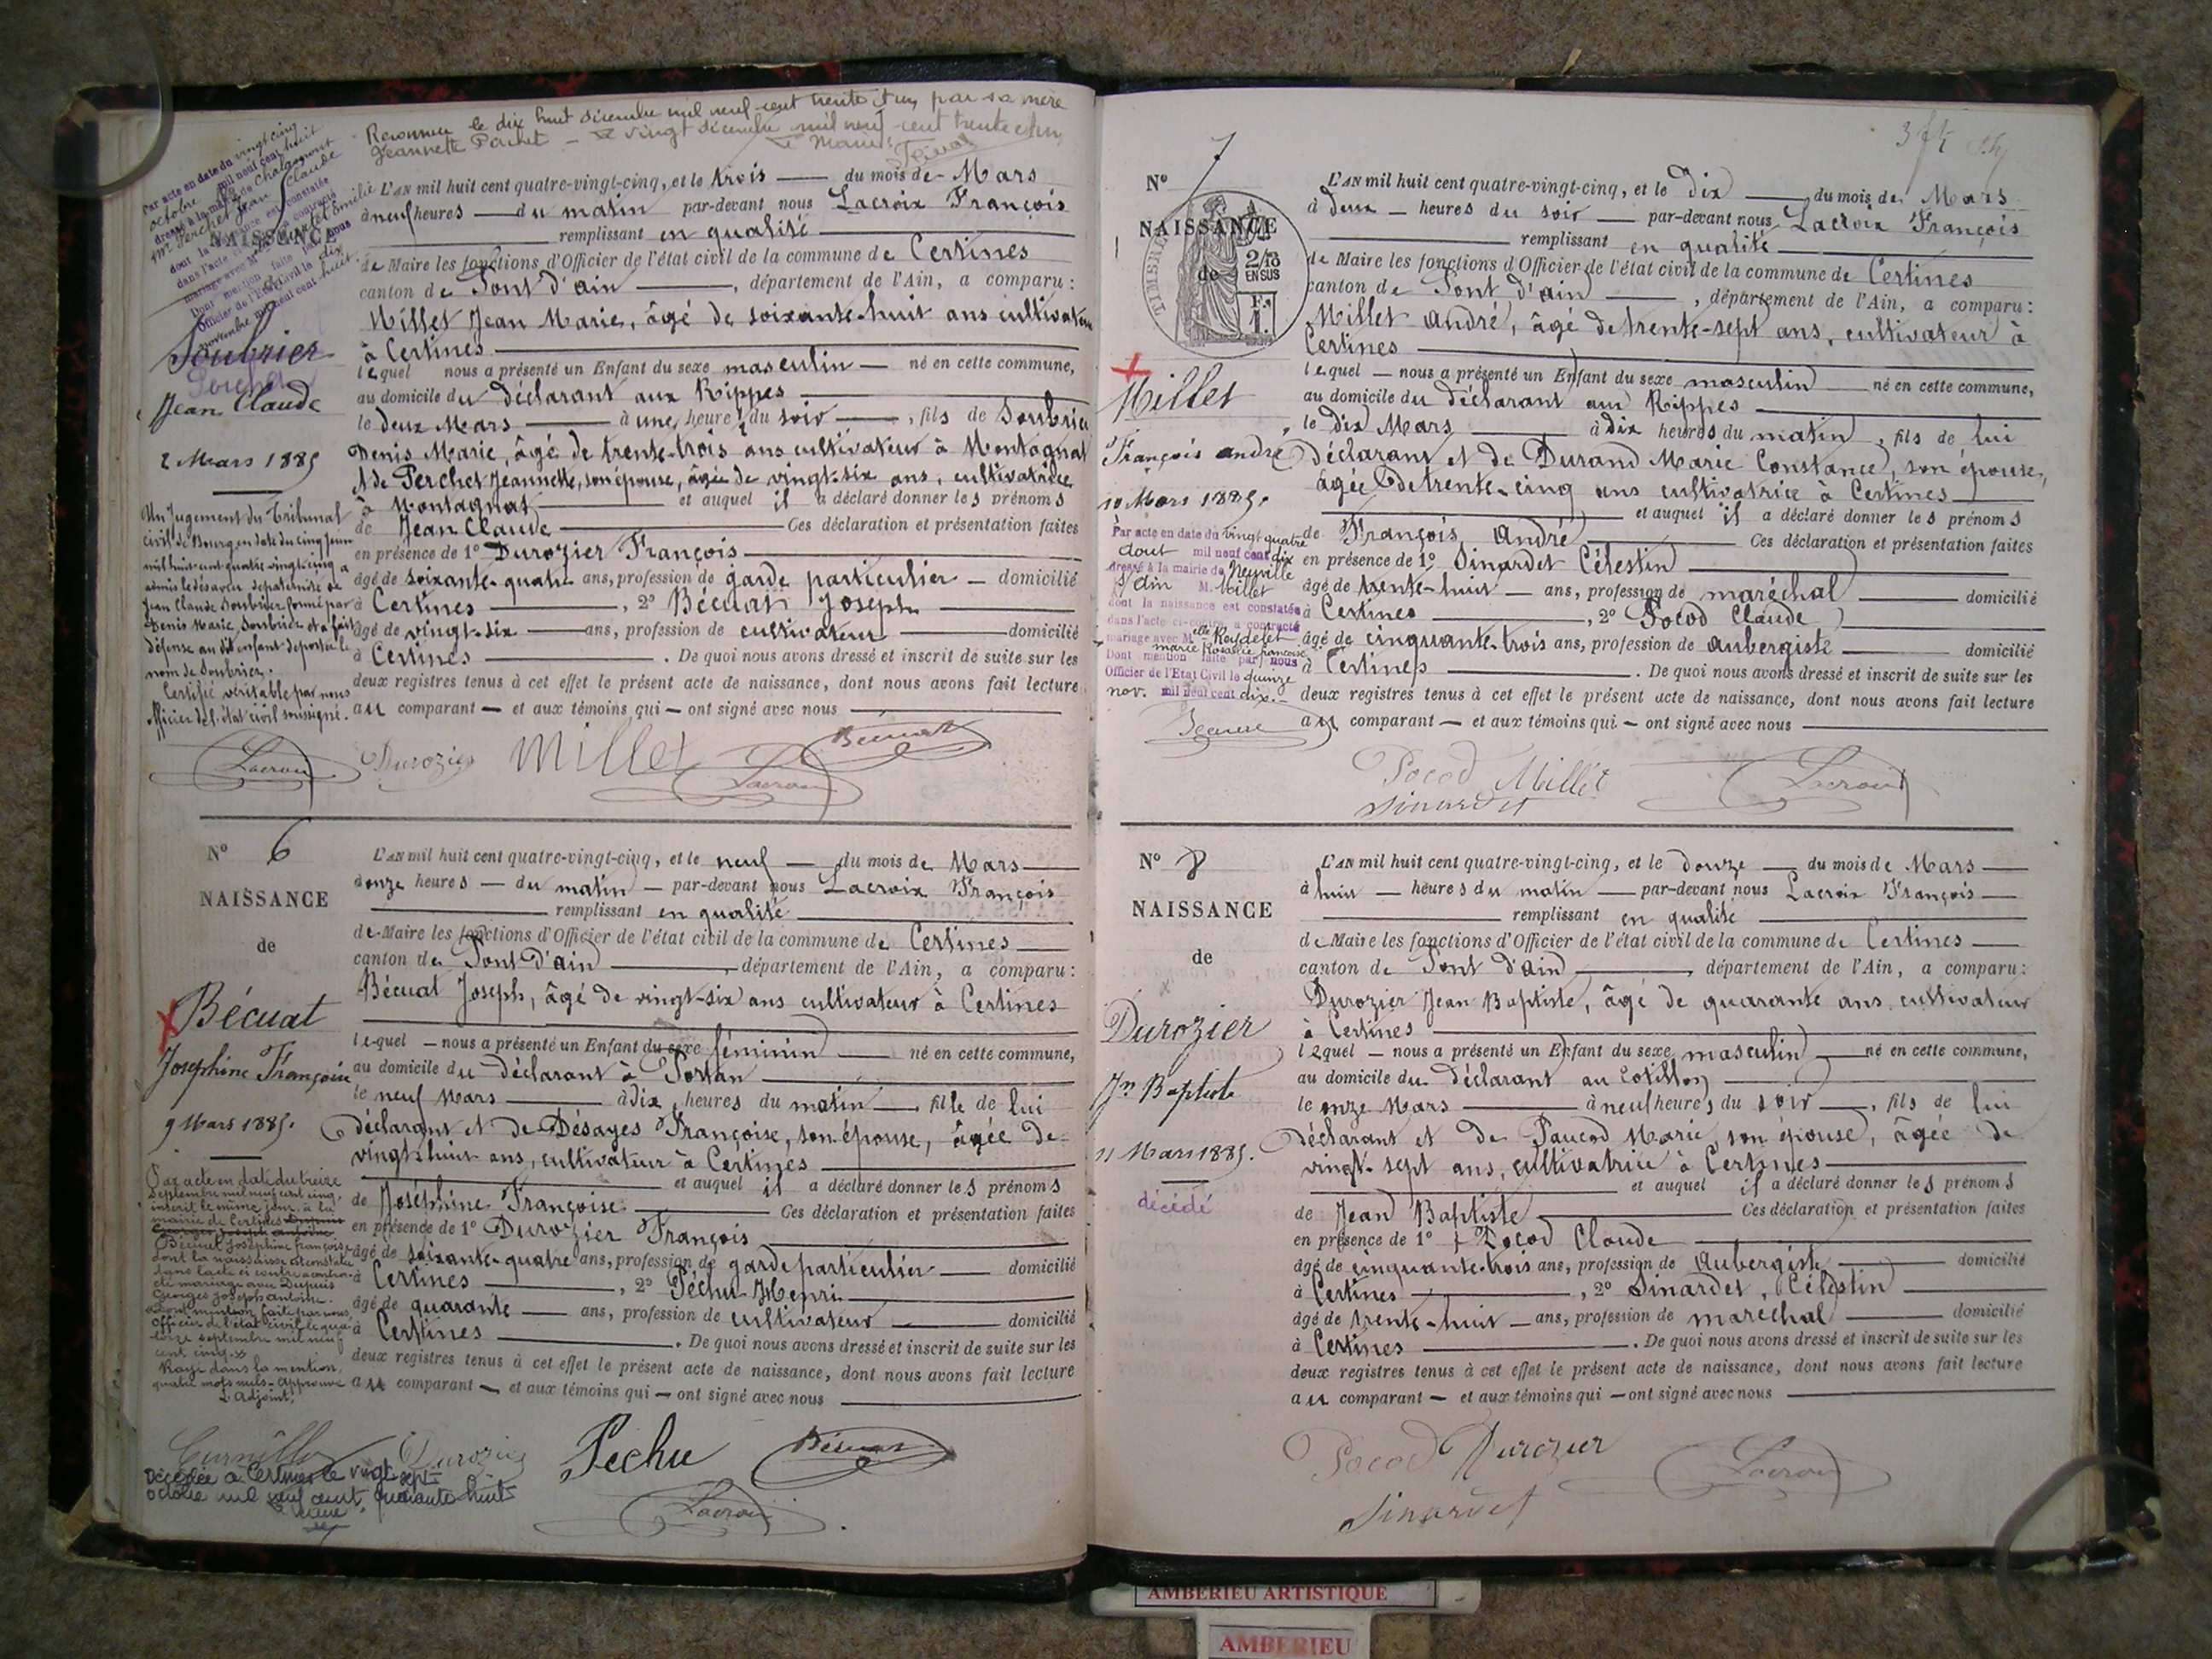 Reconnu le dix huit décembre mil neuf cent trente et un par sa mère
Jeannette Perchet - Le vingt décembre mil neuf cent trente et un
Le Maire
Par acte en date du vingt cinq
octobre mil neuf cent huit
dressé à la mairie de Chalamont
Mr Perchet Jean Claude
dont la naissance est constatée
NAISSANCE
Dont mention faite par nous
Officier de l'Etat Civil le dix
novembre mil neuf cent huit
Soubrier
Jean Claude
2 Mars 1885
Un Jugement du Tribunal
civil de Bourg en date du cinq Juin
mil huit cent quatre vingt cinq a
admis le désaveu de paternité de
Jean Claude Soubrier formé par
Denis Marie Soubrier et a fait
défense au dit enfant de porter le
nom de Soubrier.
Certifié véritable par nous
Officier de l'état civil soussigné.
Lacroix
L'AN mil huit cent quatre-vingt-cinq, et le trois du mois de Mars
à neuf heures du matin par-devant nous Lacroix François
remplissant en qualité
de Maire les fonctions d'Officier de l'état civil de la commune de Certines
canton de Pont d'ain, département de l'Ain, a comparu:
Millet Jean Marie, âgé de soixante-huit ans cultivateur
à Certines
lequel nous a présenté un Enfant du sexe masculin né en cette commune,
au domicile du déclarant aux Rippes
le deux Mars à une heure du soir, fils de Soubrier
Denis Marie, âgé de trente-trois ans cultivateur à Montagnat
et de Perchet Jeannette, son épouse, âgée de vingt-six ans, cultivatrice
à Montagnat et auquel il a déclaré donner les prénoms
de Jean Claude Ces déclaration et présentation faites
en présence de 1° Durozier François
âgé de soixante-quatre ans, profession de garde particulier domicilié
à Certines, 2° Bécuat Joseph
âgé de vingt-six ans, profession de cultivateur domicilié
à Certines. De quoi nous avons dressé et inscrit de suite sur les
deux registres tenus à cet effet le présent acte de naissance, dont nous avons fait lecture
au comparant et aux témoins qui ont signé avec nous
Durozier Millet Bécuat
Lacroix
N° 6
NAISSANCE
de
Bécuat
Joséphine Françoise
9 Mars 1885.
Par acte en date du treize
Septembre mil neuf cent cinq,
inscrit le même jour à la
mairie de Certines Dupuis
Georges Joseph Antoine
Bécuat Joséphine françoise
dont la naissance est constatée
dans l'acte ci contre a contrac-
té mariage avec Dupuis
Georges Joseph Antoine.
Dont mention faite par nous
Officier de l'état civil le qua-
torze septembre mil neuf
cent cinq.
Rayé dans la mention
quatre mots nuls - Approuvé
L'Adjoint,
L'AN mil huit cent quatre-vingt-cinq, et le neuf du mois de Mars
à onze heures du matin par-devant nous Lacroix François
remplissant en qualité
de Maire les fonctions d'Officier de l'état civil de la commune de Certines
canton de Pont d'ain, département de l'Ain, a comparu:
Bécuat Joseph, âgé de vingt-six ans cultivateur à Certines
lequel nous a présenté un Enfant du sexe féminin né en cette commune,
au domicile du déclarant à
le neuf Mars à dix heures du matin, fille de lui
déclarant et de Désayes Françoise, son épouse, âgée de
vingt-huit ans, cultivateur à Certines
et auquel il a déclaré donner les prénoms
de Joséphine Françoise Ces déclaration et présentation faites
en présence de 1° Durozier François
âgé de soixante-quatre ans, profession de garde particulier domicilié
à Certines, 2° Péchu Henri
âgé de quarante ans, profession de cultivateur domicilié
à Certines. De quoi nous avons dressé et inscrit de suite sur les
deux registres tenus à cet effet le présent acte de naissance, dont nous avons fait lecture
au comparant et aux témoins qui ont signé avec nous
Durozier Pechu Bécuat
Décédée à Certines le vingt sept
octobre mil neuf cent quarante huit
Lacroix
N° 7
NAISSANCE
de
TIMBRE
2/10 EN SUS
1 F.
Millet
François andré
10 Mars 1885.
Par acte en date du vingt quatre
aout mil neuf cent dix
dressé à la mairie de Neuville
s/ Ain M. Millet
dont la naissance est constatée
dans l'acte ci-contre a contracté
mariage avec Melle Reydelet
marie Rosalie francoise
Dont mention faite par nous
Officier de l'Etat Civil le quinze
nov. mil neuf cent dix.
L'AN mil huit cent quatre-vingt-cinq, et le dix du mois de Mars
à deux heures du soir par-devant nous Lacroix François
remplissant en qualité
de Maire les fonctions d'Officier de l'état civil de la commune de Certines
canton de Pont d'ain, département de l'Ain, a comparu:
Millet andré, âgé de trente-sept ans, cultivateur à
Certines
lequel nous a présenté un Enfant du sexe masculin né en cette commune,
au domicile du déclarant aux Rippes
le dix Mars à dix heures du matin, fils de lui
déclarant et de Durand Marie Constance, son épouse,
âgée de trente-cinq ans cultivatrice à Certines
et auquel il a déclaré donner les prénoms
de François André Ces déclaration et présentation faites
en présence de 1° Sinardet Célestin
âgé de trente-huit ans, profession de maréchal domicilié
à Certines, 2° Pocod Claude
âgé de cinquante-trois ans, profession de aubergiste domicilié
à Certines. De quoi nous avons dressé et inscrit de suite sur les
deux registres tenus à cet effet le présent acte de naissance, dont nous avons fait lecture
au comparant et aux témoins qui ont signé avec nous
Pocod Millet Lacroix
Sinardet
N° 8
NAISSANCE
de
Durozier
Jn Baptiste
11 Mars 1885.
décédé
L'AN mil huit cent quatre-vingt-cinq, et le douze du mois de Mars
à huit heures du matin par-devant nous Lacroix François
remplissant en qualité
de Maire les fonctions d'Officier de l'état civil de la commune de Certines
canton de Pont d'ain, département de l'Ain, a comparu:
Durozier Jean Baptiste, âgé de quarante ans cultivateur
à Certines
lequel nous a présenté un Enfant du sexe masculin né en cette commune,
au domicile du déclarant au Cotillon
le onze Mars à neuf heures du soir, fils de lui
déclarant et de Paucod Marie, son épouse, âgée de
vingt-sept ans, cultivatrice à Certines
et auquel il a déclaré donner les prénoms
de Jean Baptiste Ces déclaration et présentation faites
en présence de 1° Pocod Claude
âgé de cinquante-trois ans, profession de Aubergiste domicilié
à Certines, 2° Sinardet, Célestin
âgé de trente-huit ans, profession de maréchal domicilié
à Certines. De quoi nous avons dressé et inscrit de suite sur les
deux registres tenus à cet effet le présent acte de naissance, dont nous avons fait lecture
au comparant et aux témoins qui ont signé avec nous
Pocod Durozier Lacroix
Sinardet
AMBERIEU ARTISTIQUE
AMBERIEU